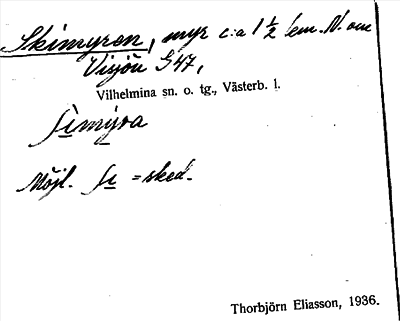 Skimyren, myr c:a 1 ½ km. N. om
Visjön S47,
Vilhelmina sn. o. tg., Västerb. l.
ʃi̱my̱ra
Möjl. ʃi̱ = sked.
Thorbjörn Eliasson, 1936.